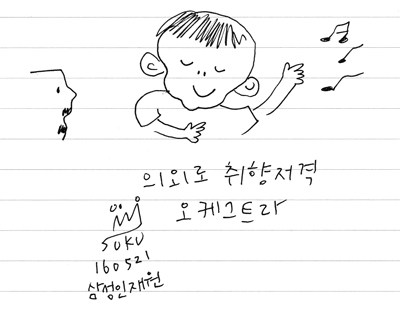 의외로 취향저격
오케스트라
SOKU
160521
삼성인재원